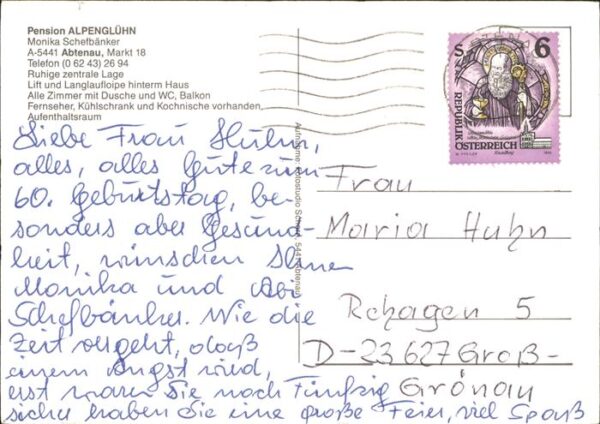 Pension ALPENGLÜHN
Monika Schefbänker
A-5441 Abtenau, Markt 18
Telefon (0 62 43) 26 94
Ruhige zentrale Lage
Lift und Langlaufloipe hinterm Haus
Alle Zimmer mit Dusche und WC, Balkon
Fernseher, Kühlschrank und Kochnische vorhanden,
Aufenthaltsraum
Liebe Frau Huhn,
alles, alles Gute zum
60. Geburtstag, be-
sonders aber Gesund-
heit, wünschen Ihnen
Monika und
Schefbänker. Wie die
Zeit vergeht, daß
einem Angst wird,
erst waren Sie noch Fünfzig
sicher haben Sie eine große Feier, viel Spaß
Aufnahme Fotostudio 5441 Abtenau
S 6
REPUBLIK
ÖSTERREICH
Frau
Maria Huhn
Rehagen 5
D-23627 Groß-
Grönau